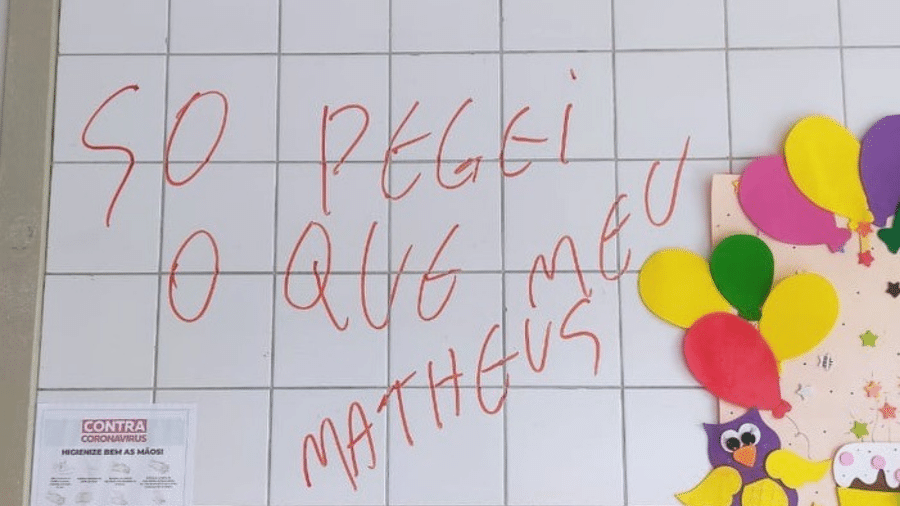 SO PEGEI
O QUE MEU
MATHEUS
CONTRA
CORONAVIRUS
HIGIENIZE BEM AS MÃOS!